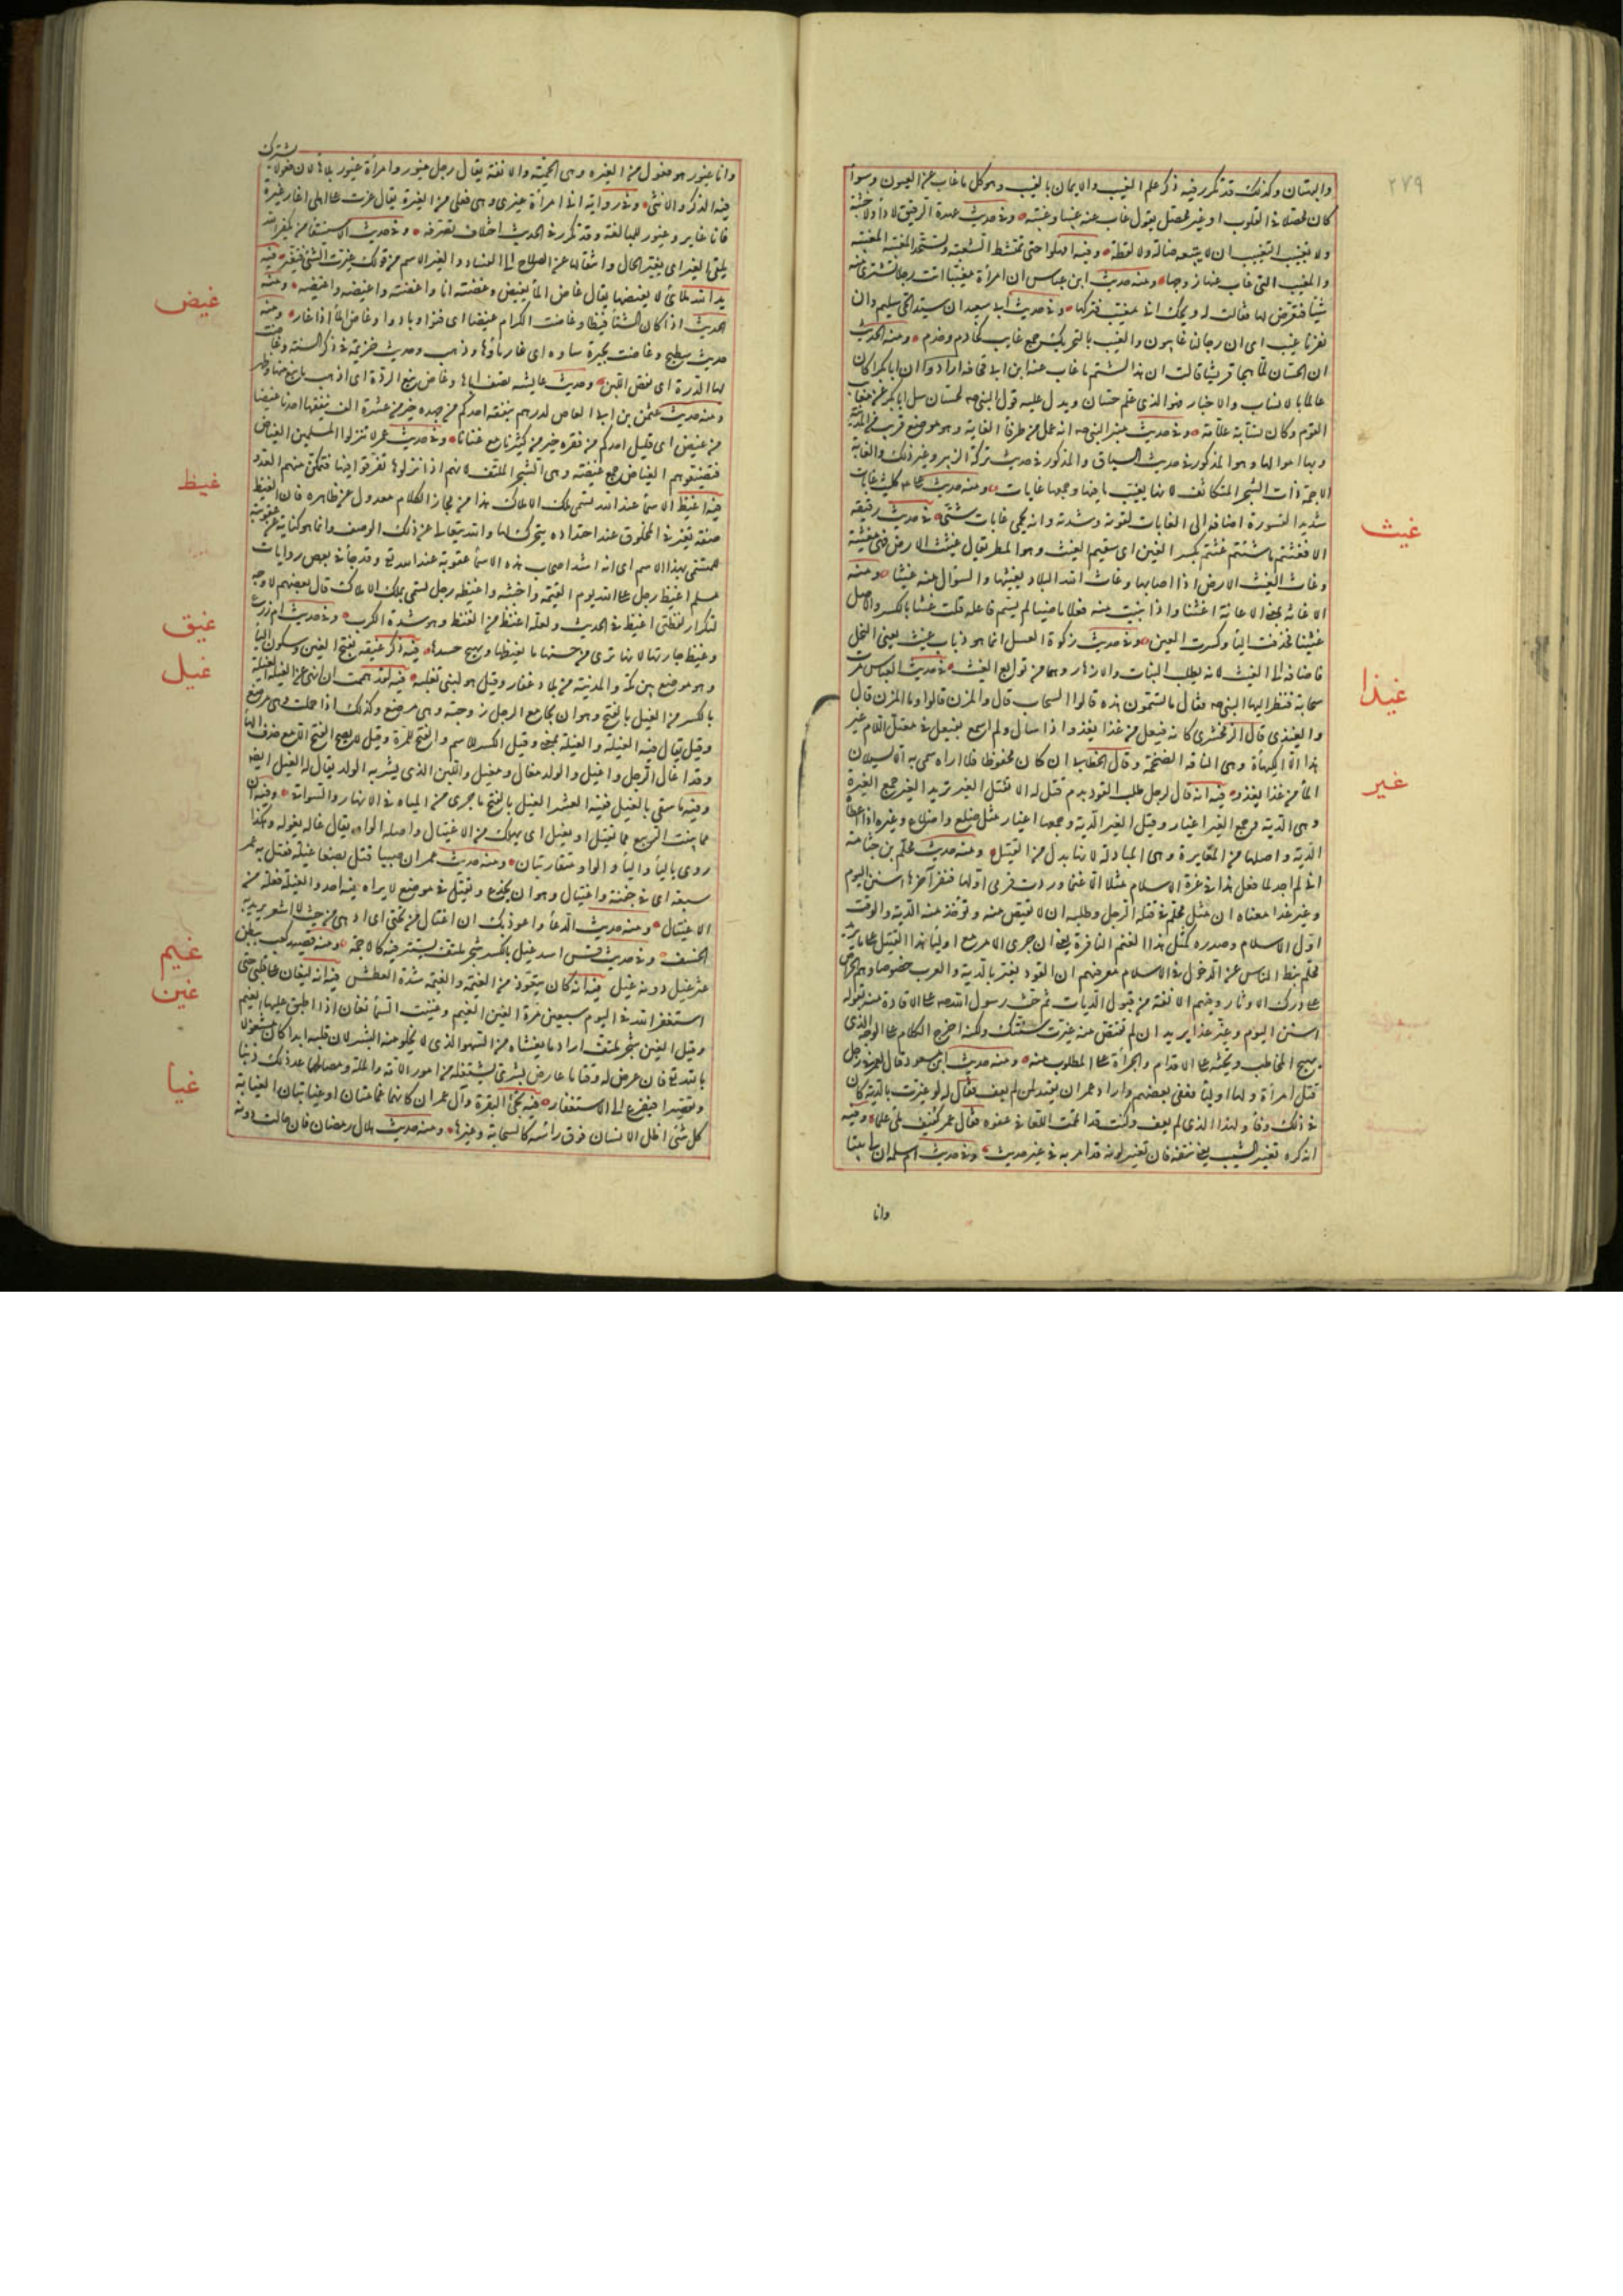 ٢٧٩
والبهتان وكذلك قد تكرر فيه ذكر علم الغيب والايمان بالغيب وهو كل ما غاب عن العيون وسوآ
كان محصلا فى القلوب او غير محصل يقول غاب عنه غيبا وغيبة وفى حديث عهدة الرقيق لا داء ولا خبثة
ولا تغييب التغييب ان لا يبيعه ضالة ولا لقطة وفيه امهلوا حتى تمتشط الشعثة وتستحد المغيبة المغيبة
والمغيب التى غاب عنها زوجها ومنه حديث ابن عباس ان امرأة مغيبا اتت رجلا تشترى منه
شيئا فتعرض لها فقالت له ويحك انى مغيب فتركها وفى حديث ابى سعيد ان سيد الحى سليم وان
نفرنا غيب اى ان رجالنا غايبون والغيب بالتحريك جمع غايب كخادم وخدم ومنه الحديث
ان حسان لما هجا قريشا قالت ان هذا لشتم ما غاب عنه ابن ابى قحافة ارادوا ان ابا بكر كان
عالما بالانساب والاخبار فهو الذى علم حسان ويدل عليه قول النبى صه لحسان سل ابا بكر عن معايب
القوم وكان نسابة علامة وفى حديث منبر النبى صه انه عمل من طرفاء الغابة وهو موضع قريب من المدينة
وبها اموال لها وهو المذكور فى حديث السباق والمذكور فى حديث تركة الزبير وغير ذلك والغابة
الاجمة ذات الشجر المتكاثف لانها يغيب ما فيها وجمعها غابات ومنه حديث على كليث غابات
شديد القسورة اضافه الى الغابات لقوته وشدته وانه يحمى غابات شتى فى حديث رقيقة
الا فغثتم ما شئتم غثتم بكسر الغين اى سقيتم الغيث وهو المطر يقال غيثت الارض فهى مغيثة
وغاث الغيث الارض اذا اصابها وغاث الله البلاد يغيثها والسؤال منه غثنا ومنه
الاغاثة بمعنى الاعانة اغثنا واذا بنيت منه فعلا ماضيا لم يسم فاعله قلت غثنا بالكسر والاصل
غيثنا فحذفت الياء وكسرت الغين وفى حديث زكوة العسل انما هو ذباب غيث يعنى النحل
فاضافه الى الغيث لانه يطلب النبات والازهار وهما من توابع الغيث فى حديث العباس مرت
سحابة فنظر اليها النبى صه فقال ما تسمون هذه قالوا السحاب قال والمزن قالوا والمزن قال
والغيذى قال الزمخشرى كانه فيعل من غذا يغذو اذا سال ولم اسمع بفيعل فى معتل اللام غير
هذا الا الكيهاة وهى الناقة الضخمة وقال الخطابى ان كان محفوظا فلا اراه سمى به الا لسيلان
الماء من غذا يغذو فيه انه قال لرجل طلب القود بدم قتيل له الا تقبل الغير تريد الغير جمع الغيرة
وهى الدية وجمع الغير اغيار وقيل الغير الدية وجمعها اغيار مثل ضلع واضلاع وغيره اذا اعطاه
الدية واصلها من المغايرة وهى المبادلة لانها بدل من القتيل ومنه حديث محلم بن جثامة
انى لم اجد لما فعل هذا فى غرة الاسلام مثلا الا غنما وردت فرمى اولها فنفر آخرها اسنن اليوم
وغير غدا معناه ان مثل محلم فى قتله الرجل وطلبه ان لا يقتص منه وتؤخذ منه الدية والوقت
اول الاسلام وصدره كمثل هذا الغنم النافرة يعنى ان جرى الامر مع اوليا هذا القتيل على ما يريد
محلم ثبط الناس عن الدخول فى الاسلام معرفتهم ان القود يغير بالدية والعرب خصوصا وهم الحراص
على درك الاوتار وفيهم الانفة من قبول الديات ثم حث رسول الله صه على الاقادة منه بقوله
اسنن اليوم وغير غدا يريد ان لم تقتص منه غيرت سنتك ولكنه اخرج الكلام على الوجه الذى
يهيج المخاطب ويحثه على الاقدام والجرأة على المطلوب منه ومنه حديث ابن مسعود قال لعمر فى رجل
قتل امرأة ولها اولياء فعفى بعضهم واراد عمر ان يقيد لمن لم يعف فقال له لو غيرت بالدية كان
فى ذلك وفاء لهذا الذى لم يعف وكنت قد اتممت للعافى عفوه فقال عمر كنيف ملئ علما وفيه
انه كره تغيير الشيب يعنى نتفه فان تغيير لونه قد امر به فى غير حديث وفى حديث ام سلمة ان لى بنتا
وانا
غيث
غيذا
غير
وانا غيور هو فعول من الغيرة وهى الحمية والانفة يقال رجل غيور وامرأة غيور بلا هاء لان فعولا يشترك
فيه الذكر والانثى وفى رواية انى امرأة غيرى وهى فعلى من الغيرة يقال غرت على اهلى اغار غيرة
فانا غاير وغيور للمبالغة وقد تكرر فى الحديث اختلاف تصرفه وفى حديث الاستسقا من يكفر الله
يلقى الغير اى يغير الحال وانتقالها عن الصلاح الى الفساد والغير الاسم من قولك غيرت الشئ فتغير فيه
يد الله ملأى لا يغيضها يقال غاض الماء يغيض وغضته انا واغضته واغيضه واغيضه ومنه
الحديث اذا كان الشتاء قيظا وغاضت الكرام غيضا اى فنوا وبادوا وغاض الماء اذا غار ومنه
حديث سطيح وغاضت بحيرة ساوه اى غار ماؤها وذهب وحديث خزيمة فى ذكر السنة وغاضت
لها الدرة اى نقص اللبن وحديث عايشه تصف اباها وغاض نبغ الردة اى اذهب ما نبغ منها وظهر
ومنه حديث عثمن بن ابى العاص لدرهم ينفقه احدكم من جهده خير من عشرة الف ينفقها احدنا غيضا
من غيض اى قليل احدكم من فقره خير من كثيرنا مع غنانا وفى حديث عمر لا تنزلوا المسلمين الغياض
فتضيعوهم الغياض جمع غيضة وهى الشجر الملتف لانهم اذا نزلوها تفرقوا فيها فتمكن منهم العدو
فيه اغيظ الاسما عند الله رجل تسمى ملك الاملاك هذا من مجاز الكلام معدول عن ظاهره فان الغيظ
صفة تغير فى المخلوق عند احتداده يتحرك لها والله يتعالى عن ذلك الوصف وانما هو كناية عن عقوبته
للمتسمى بهذا الاسم اى انه اشد اصحاب هذه الاسما عقوبة عند الله تع وقد جاء فى بعض روايات
مسلم اغيظ رجل على الله يوم القيمة واخبثه واغيظه رجل تسمى ملك الاملاك قال بعضهم لا وجه
لتكرار لفظتى اغيظ فى الحديث ولعله اغنظ من الغنظ وهو شدة الكرب وفى حديث ام زرع
وغيظ جارتها لانها ترى من حسنها ما يغيظها ويهيج حسدها فيه ذكر غيقه بفتح الغين وسكون الياء
وهو موضع بين مكة والمدينة من بلاد غفار وقيل هو لبنى ثعلبة فيه لقد هممت ان انهى عن الغيلة الغيلة
بالكسر من الغيل بالفتح وهو ان يجامع الرجل زوجته وهى مرضع وكذلك اذا حملت وهى مرضع
وقيل يقال فيه الغيلة والغيلة بمعنى وقيل الكسر للاسم والفتح للمرة وقيل لا يصح الفتح الا مع حذف الهاء
وقد اغال الرجل واغيل والولد مغال ومغيل واللبن الذى يشربه الولد يقال له الغيل ايضه
وفيه ما سقى بالغيل ففيه العشر الغيل بالفتح ما جرى من المياه فى الانهار والسواقى وفيه ان
مما ينبت الربيع مما يقتل او يغيل اى يهلك من الاغتيال واصله الواو يقال غاله يغوله وهكذا
روى بالياء والياء والواو متقاربتان ومنه حديث عمر ان صبيا قتل بصنعا غيلة فقتل به عمر
سبعة اى فى خفية واغتيال وهو ان يخدع ويقتل فى موضع لا يراه فيه احد والغيلة فعلة من
الاغتيال ومنه حديث الدعاء واعوذ بك ان اغتال من تحتى اى ادهى من حيث لا اشعر يريد به
الخسف وفى حديث قس اسد غيل بالكسر شجر ملتف يستتر فيه كالاجمة ومنه قصيد كعب ببطن
عثر غيل دونه غيل فيه انه كان يتعوذ من العيمة والغيمة الغيمة شدة العطش فيه انه ليغان على قلبى حتى
استغفر الله فى اليوم سبعين مرة الغين الغيم وغينت السماء تغان اذا اطبق عليها الغيم
وقيل الغين شجر ملتف اراد ما يغشاه من السهو الذى لا يخلو منه البشر لان قلبه ابدا كان مشغولا
بالله تع فان عرض له وقتا ما عارض بشرى يشغله من امور الامة والملة ومصالحهما عد ذلك ذنبا
وتقصيرا فيفزع الى الاستغفار فيه تجئ البقرة وآل عمران كانهما غمامتان او غيايتان الغياية
كل شئ اظل الانسان فوق راسه كالسحابة وغيرها ومنه حديث هلال رمضان فان حالت دونه
غيض
غيظ
غيق
غيل
غيم
غين
غيا